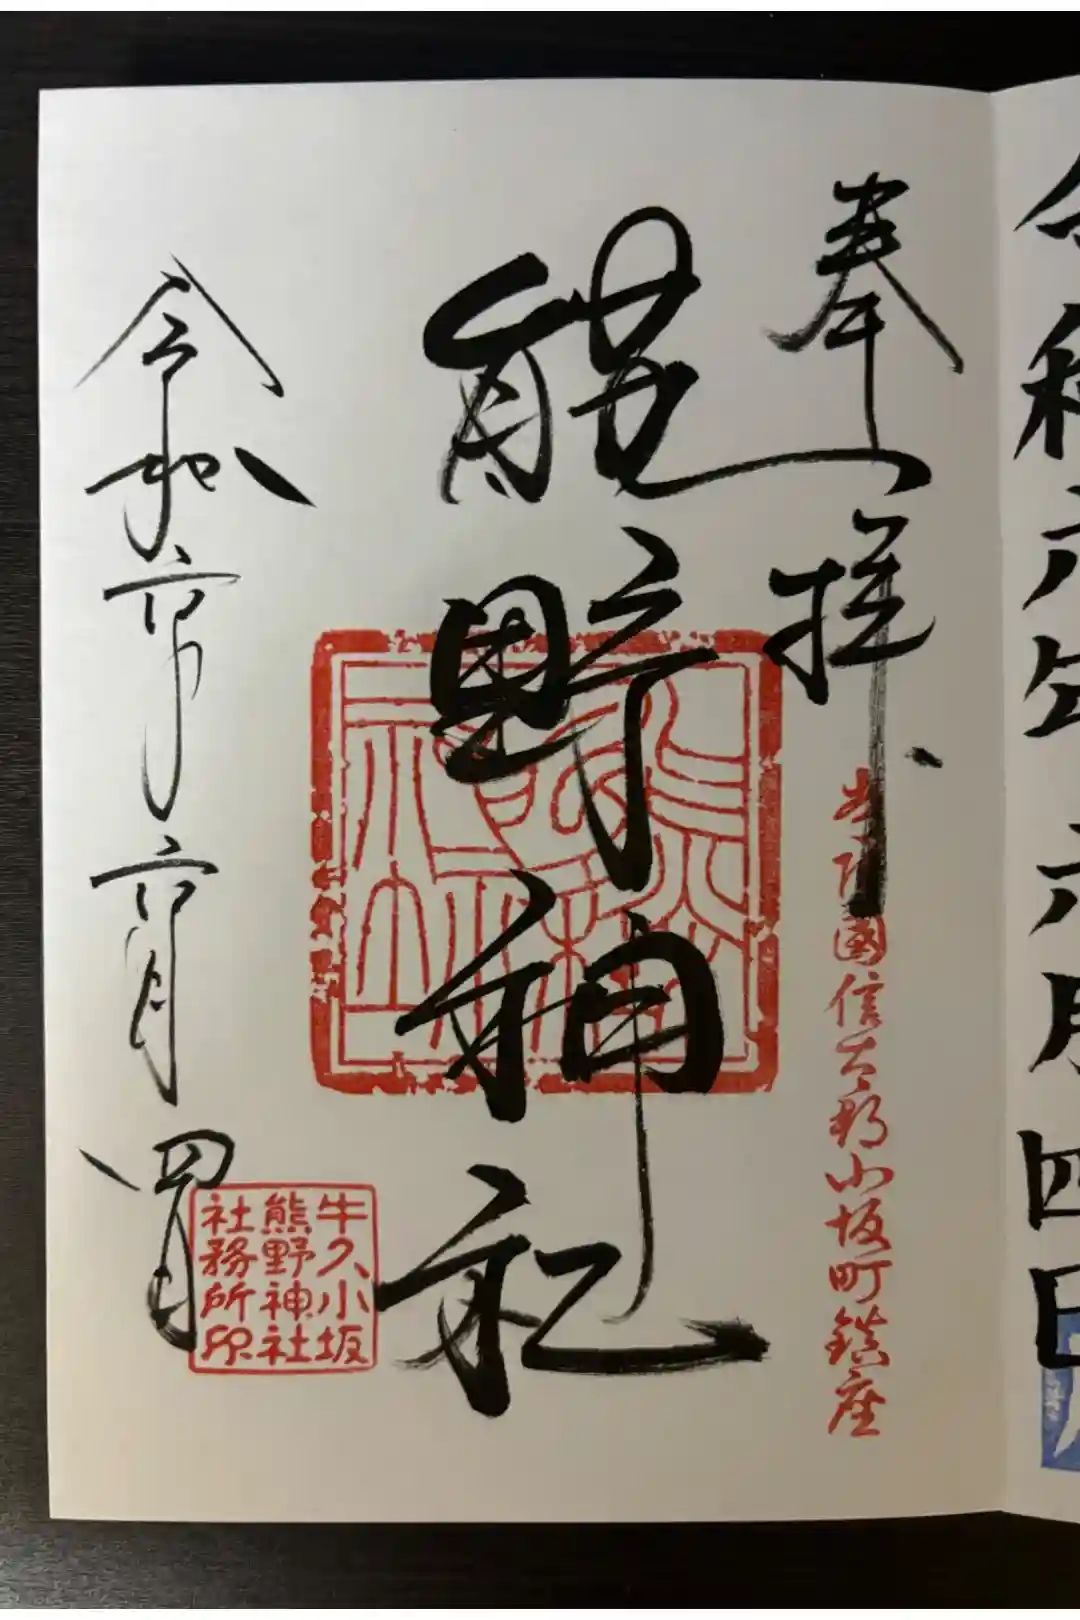 令和六年六月四日
奉拝
常陸國信太郡小坂町鎮座
熊野神社
牛久小坂
熊野神社
社務所印
令和六年六月四日